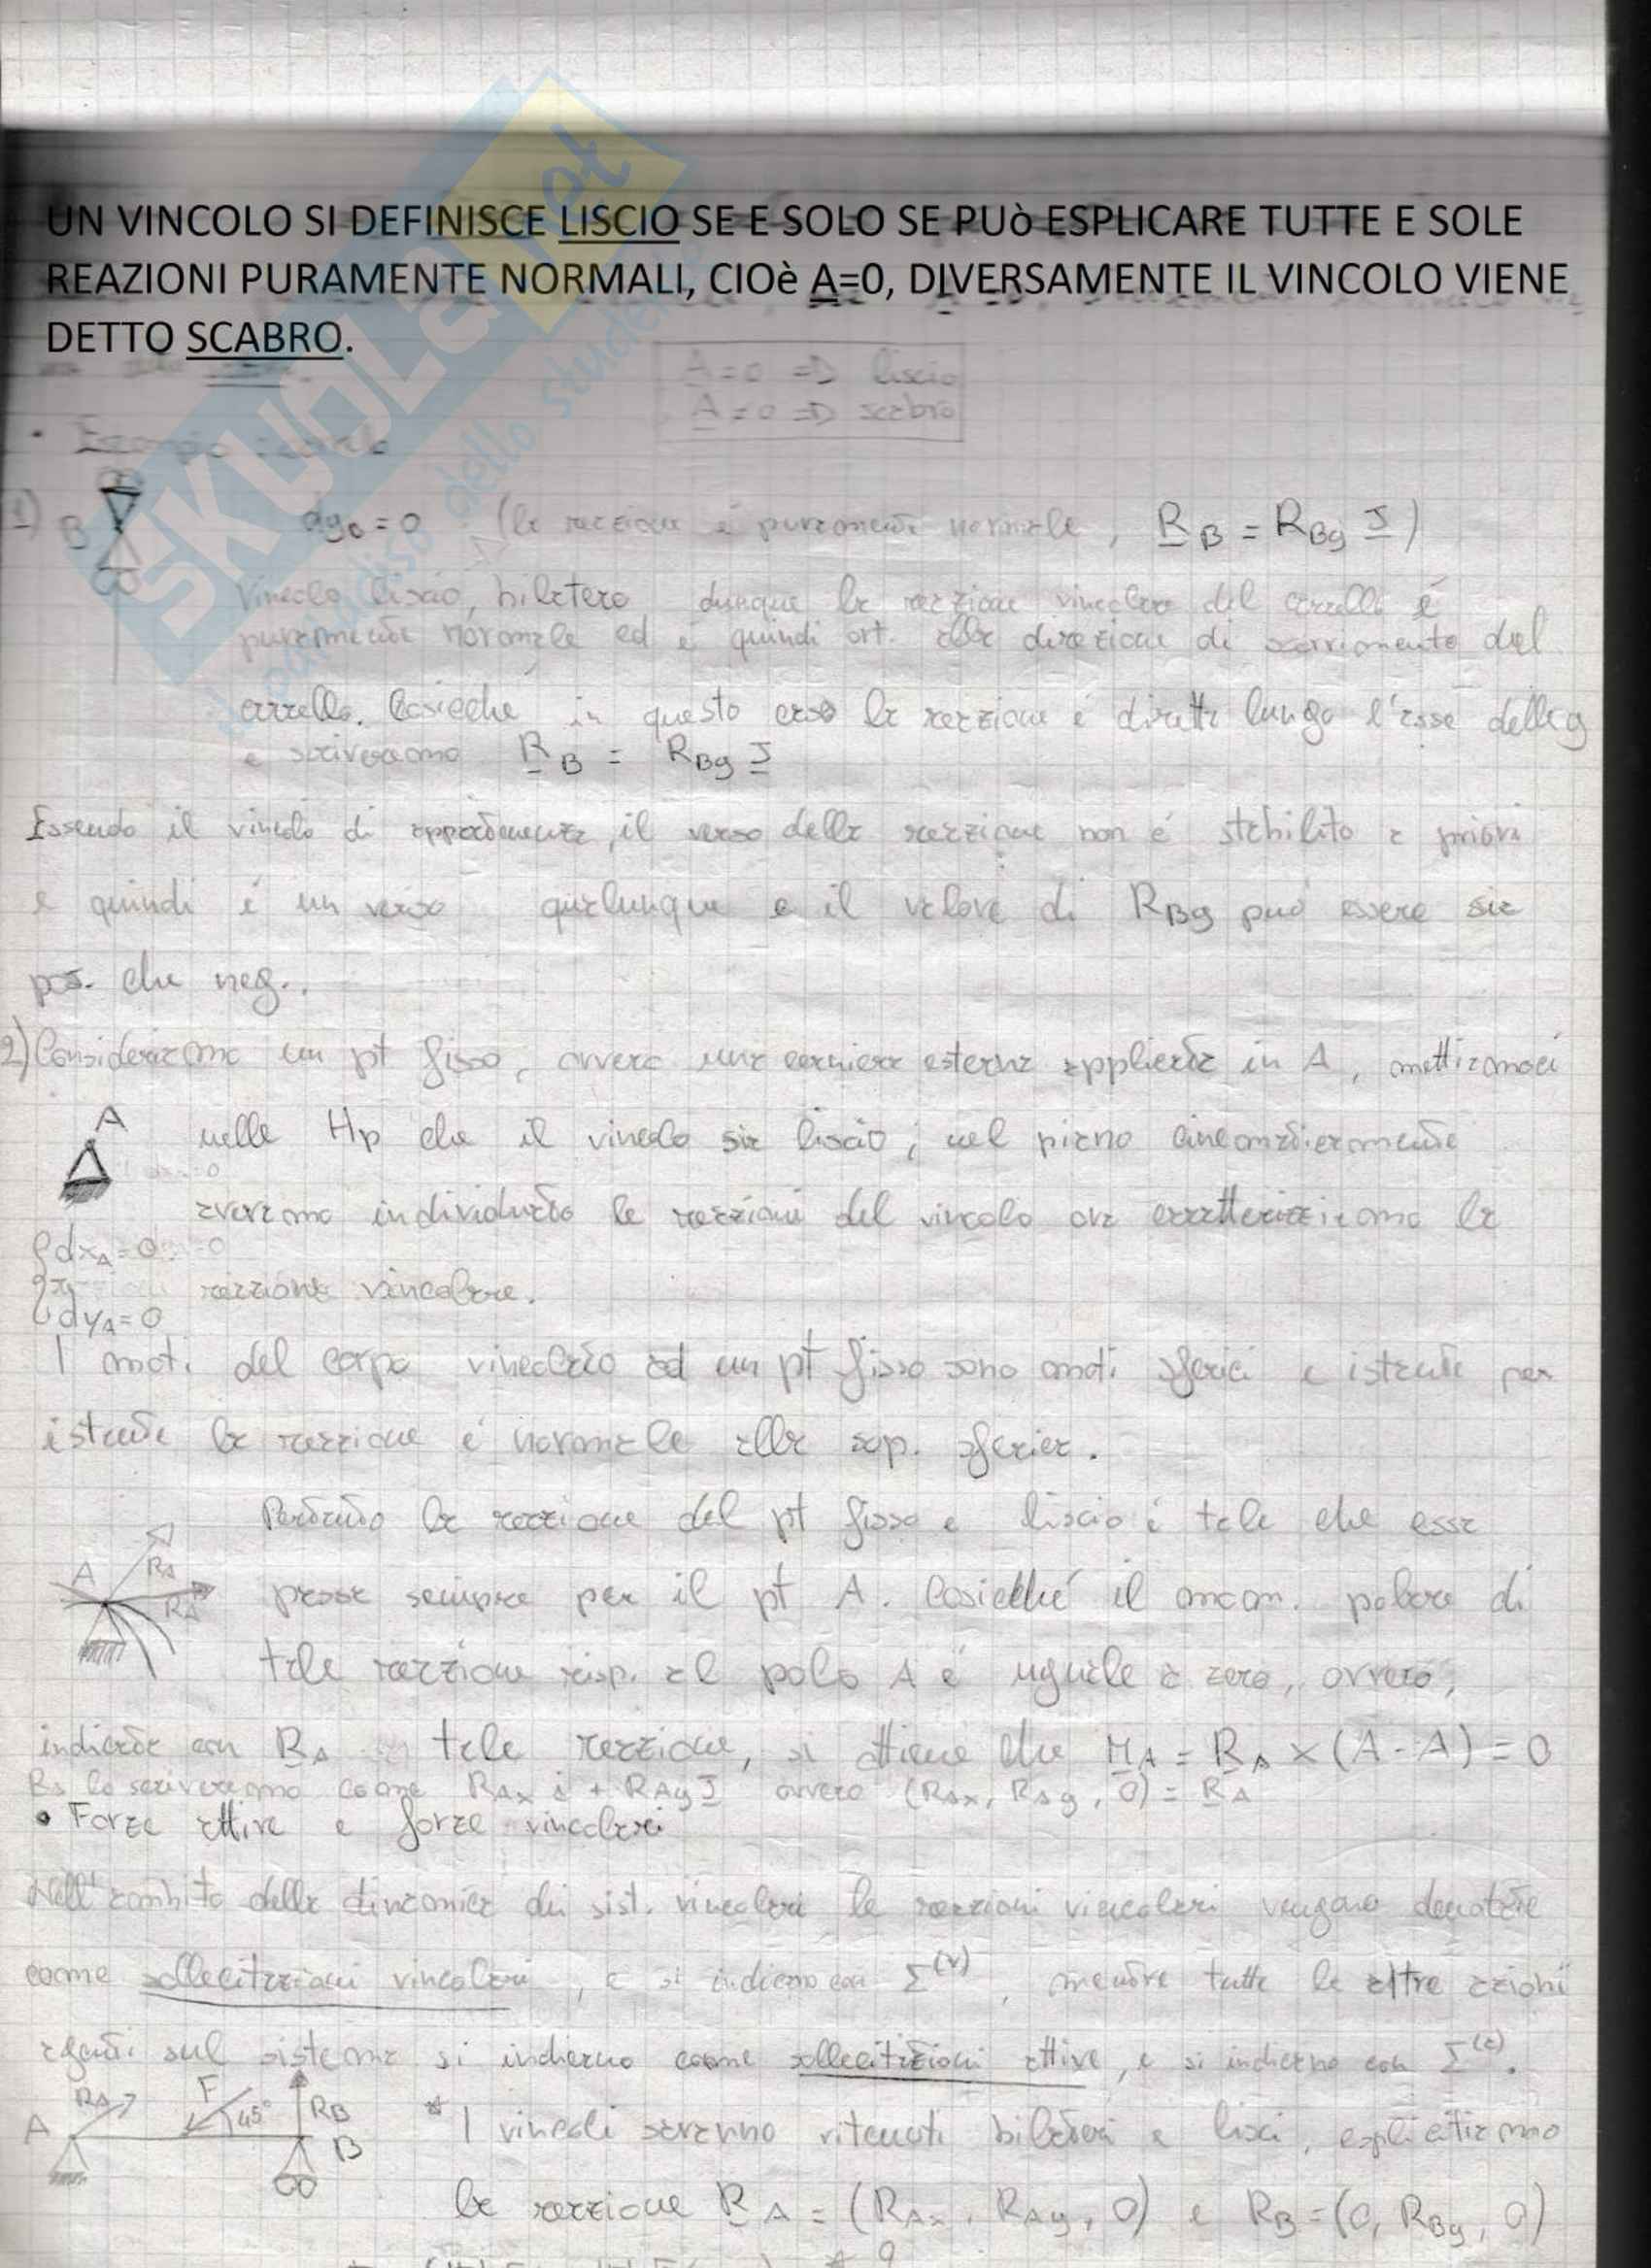 UN VINCOLO SI DEFINISCE LISCIO SE E SOLO SE PUò ESPLICARE TUTTE E SOLE
REAZIONI PURAMENTE NORMALI, CIOè A=0, DIVERSAMENTE IL VINCOLO VIENE
DETTO SCABRO.
A = 0 => liscio
A = 0 => scabro
• Esempio
1) B dy₀ = 0 (la reazione è puramente normale, R_B = R_By J)
Vincolo liscio, bilatero dunque la reazione vincolare del carrello è
puramente normale ed è quindi ort. alla direzione di scorrimento del
carrello. Cosicché in questo caso la reazione è diretta lungo l'asse delle y
e scriveremo R_B = R_By J
Essendo il vincolo di appartenenza, il verso della reazione non è stabilito a priori
e quindi è un verso qualunque e il valore di R_By può essere sia
pos. che neg..
2) Consideriamo un pt fisso, ovvero una cerniera esterna applicata in A, mettiamoci
A nelle Hp che il vincolo sia liscio; nel piano cinematicamente
avevamo individuato le reazioni del vincolo ora caratterizziamo la
dx_A = 0
reazione vincolare.
dy_A = 0
I moti del corpo vincolato ad un pt fisso sono moti sferici e istante per
istante la reazione è normale alla sup. sferica.
Pertanto la reazione del pt fisso e liscio è tale che essa
A R_A R_A
passa sempre per il pt A. Cosicché il mom. polare di
tale reazione risp. al polo A è uguale a zero, ovvero,
indicata con R_A tale reazione, si ottiene che M_A = R_A × (A - A) = 0
R_A la scriveremo come R_Ax i + R_Ay J ovvero (R_Ax, R_Ay, 0) = R_A
• Forze attive e forze vincolari
Nell'ambito della dinamica dei sist. vincolari le reazioni vincolari vengono denotate
come sollecitazioni vincolari, e si indicano con Σ^(v), mentre tutte le altre azioni
agenti sul sistema si indicano come sollecitazioni attive, e si indicano con Σ^(a).
A R_A F 45° R_B B
* I vincoli saranno ritenuti bilateri e lisci, esplicitiamo
la reazione R_A = (R_Ax, R_Ay, 0) e R_B = (0, R_By, 0)
SKUOLA.net